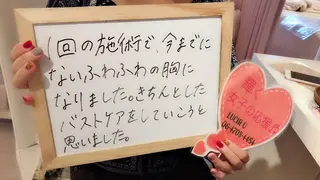 1回の施術で、今までに
ないふわふわの胸に
なりました。きちんとした
バストケアをしていこうと
思いました。
輝く
女子の応援
LUCIR U